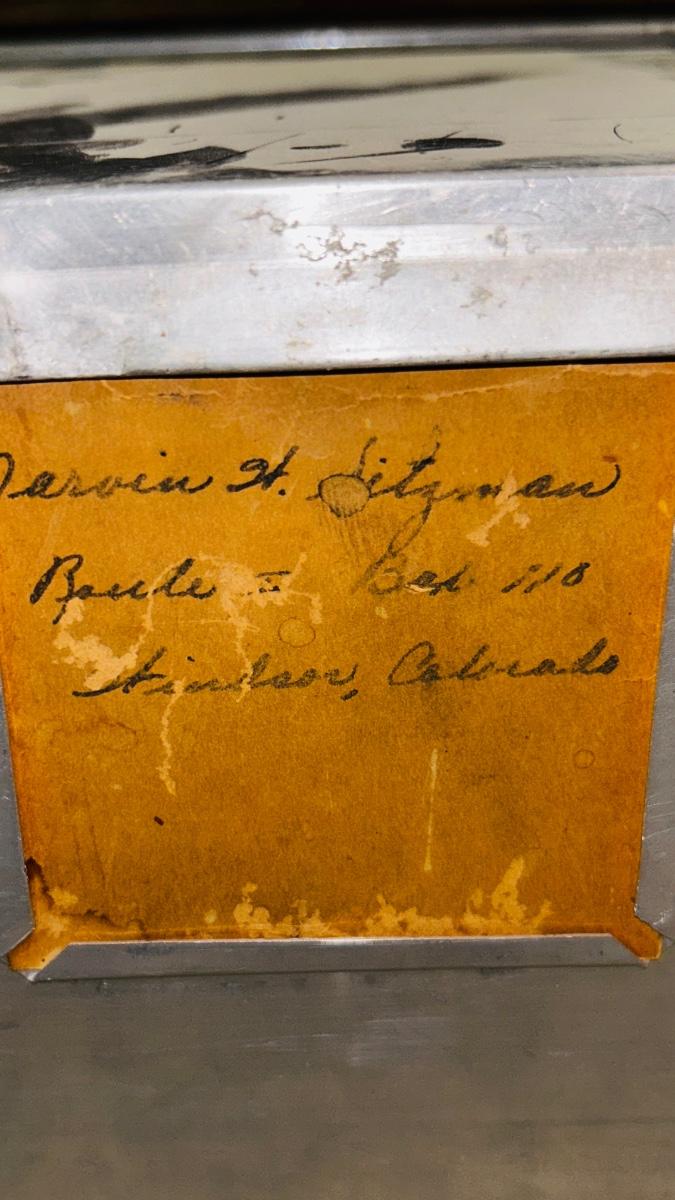 Marvin H. Sitzman
Route I Box 110
Windsor, Colorado